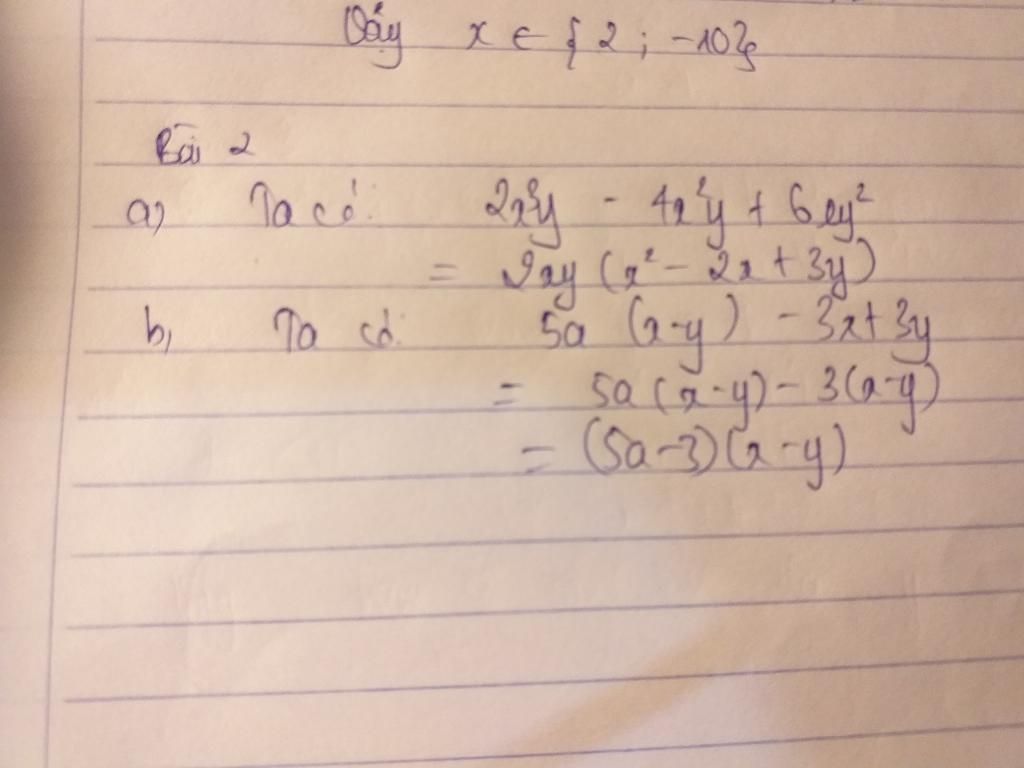 Vậy x ∈ { 2 ; -10}
Bài 2
a) Ta có: 2x³y - 4x²y + 6xy²
= 2xy (x² - 2x + 3y)
b, Ta có: 5a (x-y) - 3x + 3y
= 5a (x-y) - 3(x-y)
= (5a-3)(x-y)